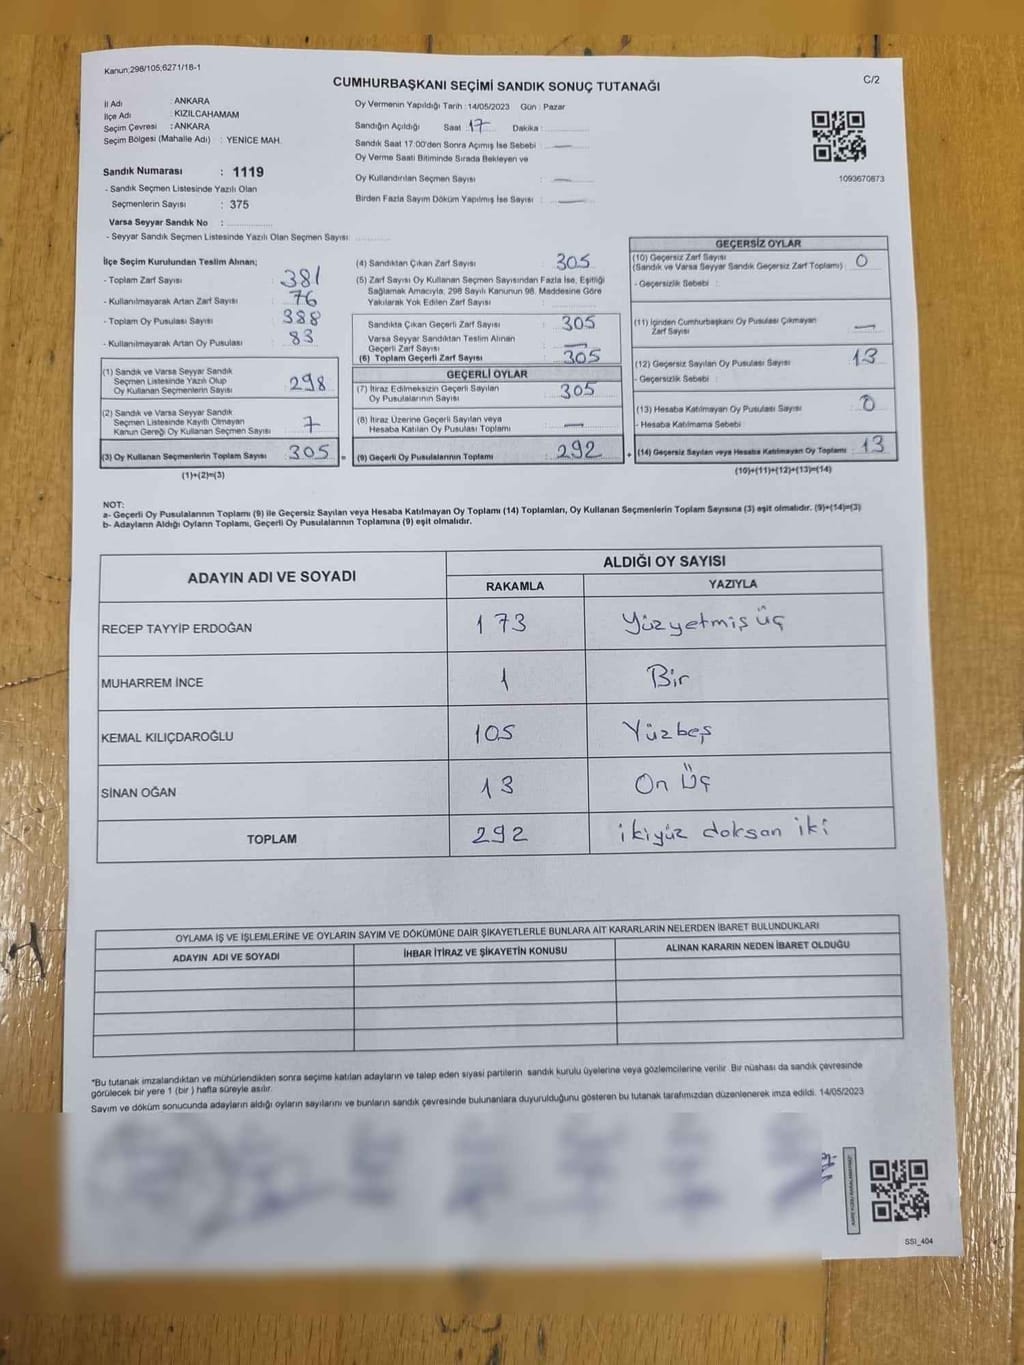 Kanun;298/105;6271/18-1
CUMHURBAŞKANI SEÇİMİ SANDIK SONUÇ TUTANAĞI
C/2
İl Adı : ANKARA
İlçe Adı : KIZILCAHAMAM
Seçim Çevresi : ANKARA
Seçim Bölgesi (Mahalle Adı) : YENİCE MAH.
Sandık Numarası : 1119
- Sandık Seçmen Listesinde Yazılı Olan
Seçmenlerin Sayısı : 375
Varsa Seyyar Sandık No :
- Seyyar Sandık Seçmen Listesinde Yazılı Olan Seçmen Sayısı:
Oy Vermenin Yapıldığı Tarih : 14/05/2023 Gün : Pazar
Sandığın Açıldığı Saat : 17 Dakika :
Sandık Saat 17:00'den Sonra Açımış İse Sebebi : —
Oy Verme Saati Bitiminde Sırada Bekleyen ve
Oy Kullandırılan Seçmen Sayısı : —
Birden Fazla Sayım Döküm Yapılmış İse Sayısı : —
1093670873
İlçe Seçim Kurulundan Teslim Alınan;
- Toplam Zarf Sayısı : 381
- Kullanılmayarak Artan Zarf Sayısı : 76
- Toplam Oy Pusulası Sayısı : 388
- Kullanılmayarak Artan Oy Pusulası : 83
(1) Sandık ve Varsa Seyyar Sandık
Seçmen Listesinde Yazılı Olup
Oy Kullanan Seçmenlerin Sayısı : 298
(2) Sandık ve Varsa Seyyar Sandık
Seçmen Listesinde Kayıtlı Olmayan
Kanun Gereği Oy Kullanan Seçmen Sayısı : 7
(3) Oy Kullanan Seçmenlerin Toplam Sayısı : 305 =
(1)+(2)=(3)
(4) Sandıktan Çıkan Zarf Sayısı : 305
(5) Zarf Sayısı Oy Kullanan Seçmen Sayısından Fazla İse, Eşitliği
Sağlamak Amacıyla, 298 Sayılı Kanunun 98. Maddesine Göre
Yakılarak Yok Edilen Zarf Sayısı :
Sandıkta Çıkan Geçerli Zarf Sayısı : 305
Varsa Seyyar Sandıktan Teslim Alınan
Geçerli Zarf Sayısı : —
(6) Toplam Geçerli Zarf Sayısı : 305
GEÇERLİ OYLAR
(7) İtiraz Edilmeksizin Geçerli Sayılan
Oy Pusulalarının Sayısı : 305
(8) İtiraz Üzerine Geçerli Sayılan veya
Hesaba Katılan Oy Pusulası Toplamı : —
(9) Geçerli Oy Pusulalarının Toplamı : 292 +
GEÇERSİZ OYLAR
(10) Geçersiz Zarf Sayısı
(Sandık ve Varsa Seyyar Sandık Geçersiz Zarf Toplamı) : 0
- Geçersizlik Sebebi :
(11) İçinden Cumhurbaşkanı Oy Pusulası Çıkmayan
Zarf Sayısı : —
(12) Geçersiz Sayılan Oy Pusulası Sayısı : 13
- Geçersizlik Sebebi :
(13) Hesaba Katılmayan Oy Pusulası Sayısı : 0
- Hesaba Katılmama Sebebi :
(14) Geçersiz Sayılan veya Hesaba Katılmayan Oy Toplamı : 13
(10)+(11)+(12)+(13)=(14)
NOT:
a- Geçerli Oy Pusulalarının Toplamı (9) ile Geçersiz Sayılan veya Hesaba Katılmayan Oy Toplamı (14) Toplamları, Oy Kullanan Seçmenlerin Toplam Sayısına (3) eşit olmalıdır. (9)+(14)=(3)
b- Adayların Aldığı Oyların Toplamı, Geçerli Oy Pusulalarının Toplamına (9) eşit olmalıdır.
ADAYIN ADI VE SOYADI
ALDIĞI OY SAYISI
RAKAMLA YAZIYLA
RECEP TAYYİP ERDOĞAN 173 Yüzyetmiş üç
MUHARREM İNCE 1 Bir
KEMAL KILIÇDAROĞLU 105 Yüzbeş
SİNAN OĞAN 13 On Üç
TOPLAM 292 ikiyüz doksan iki
OYLAMA İŞ VE İŞLEMLERİNE VE OYLARIN SAYIM VE DÖKÜMÜNE DAİR ŞİKAYETLERLE BUNLARA AİT KARARLARIN NELERDEN İBARET BULUNDUKLARI
ADAYIN ADI VE SOYADI İHBAR İTİRAZ VE ŞİKAYETİN KONUSU ALINAN KARARIN NEDEN İBARET OLDUĞU
*Bu tutanak imzalandıktan ve mühürlendikten sonra seçime katılan adayların ve talep eden siyasi partilerin sandık kurulu üyelerine veya gözlemcilerine verilir. Bir nüshası da sandık çevresinde
görülecek bir yere 1 (bir ) hafta süreyle asılır.
Sayım ve döküm sonucunda adayların aldığı oyların sayılarını ve bunların sandık çevresinde bulunanlara duyurulduğunu gösteren bu tutanak tarafımızdan düzenlenerek imza edildi. 14/05/2023
SSI_404